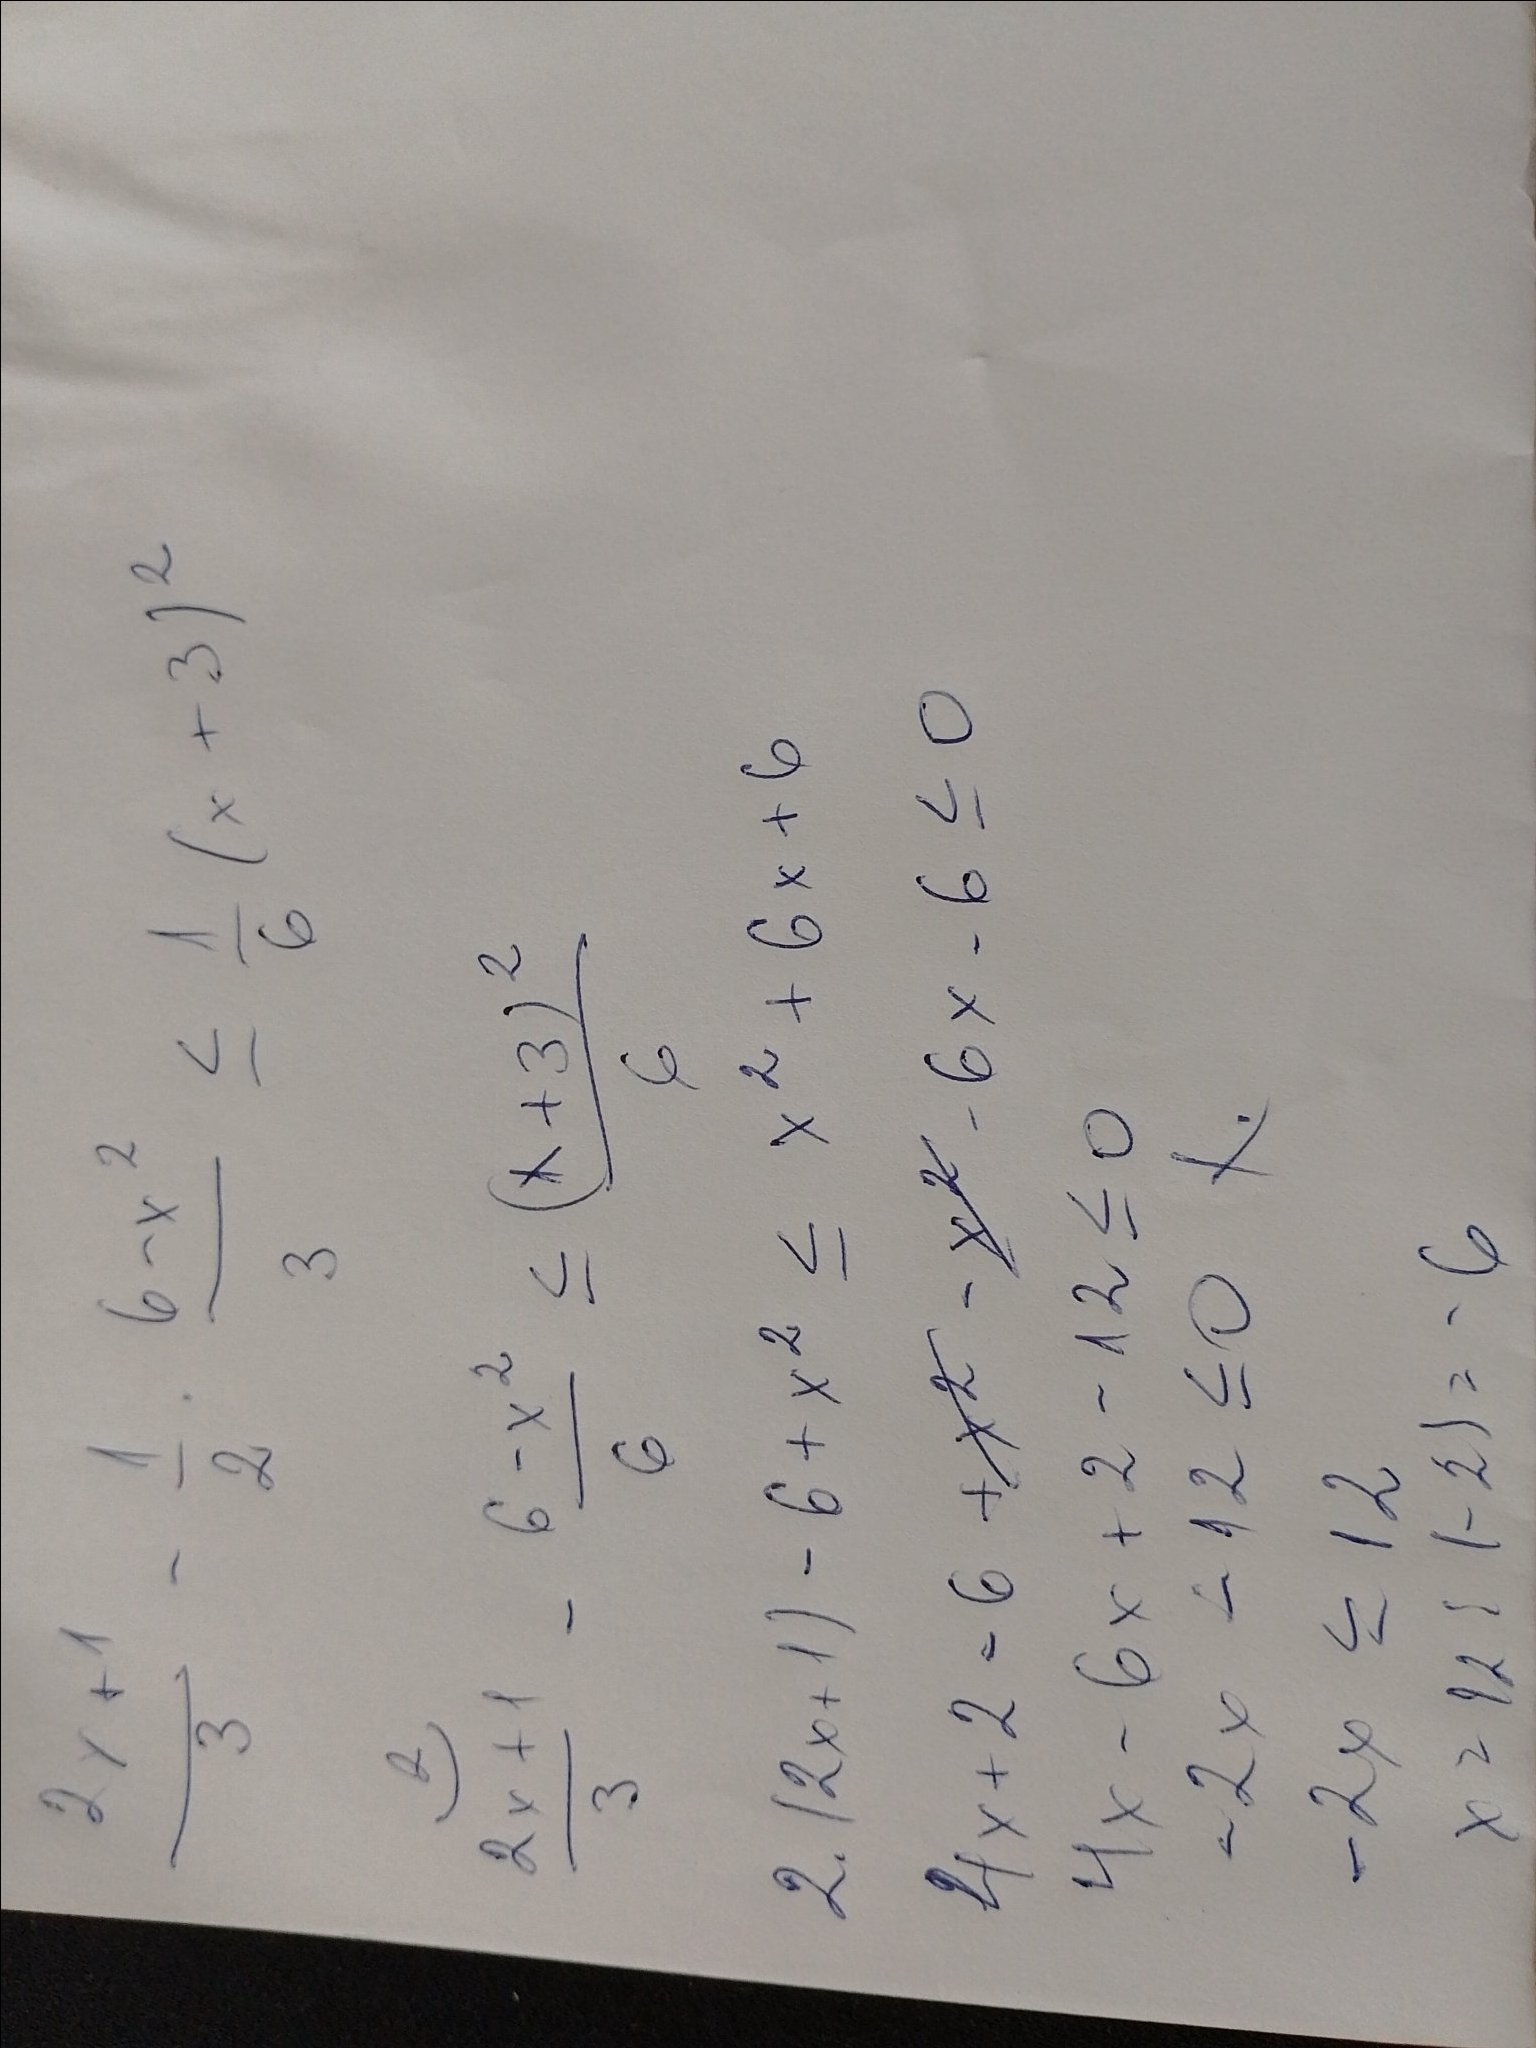 (2x+1)/3 - 1/2 · (6-x²)/3 ≤ 1/6 (x+3)²
2) (2x+1)/3 - (6-x²)/6 ≤ (x+3)²/6
2.(2x+1) - 6 + x² ≤ x² + 6x + 6
4x + 2 - 6 + x² - x² - 6x - 6 ≤ 0
4x - 6x + 2 - 12 ≤ 0
-2x - 12 ≤ 0
-2x ≤ 12
x = 12 : (-2) = -6